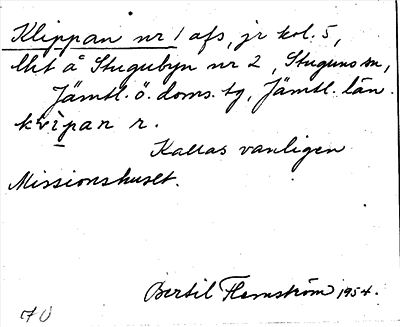 Klippan nr 1 afs, jr kol. 5,
lht å Stugubyn nr 2, Stuguns sn,
Jämtl. ö. doms. tg, Jämtl. län.
klìpan r.
Kallas vanligen
Missionshuset.
Bertil Flemström 1954.